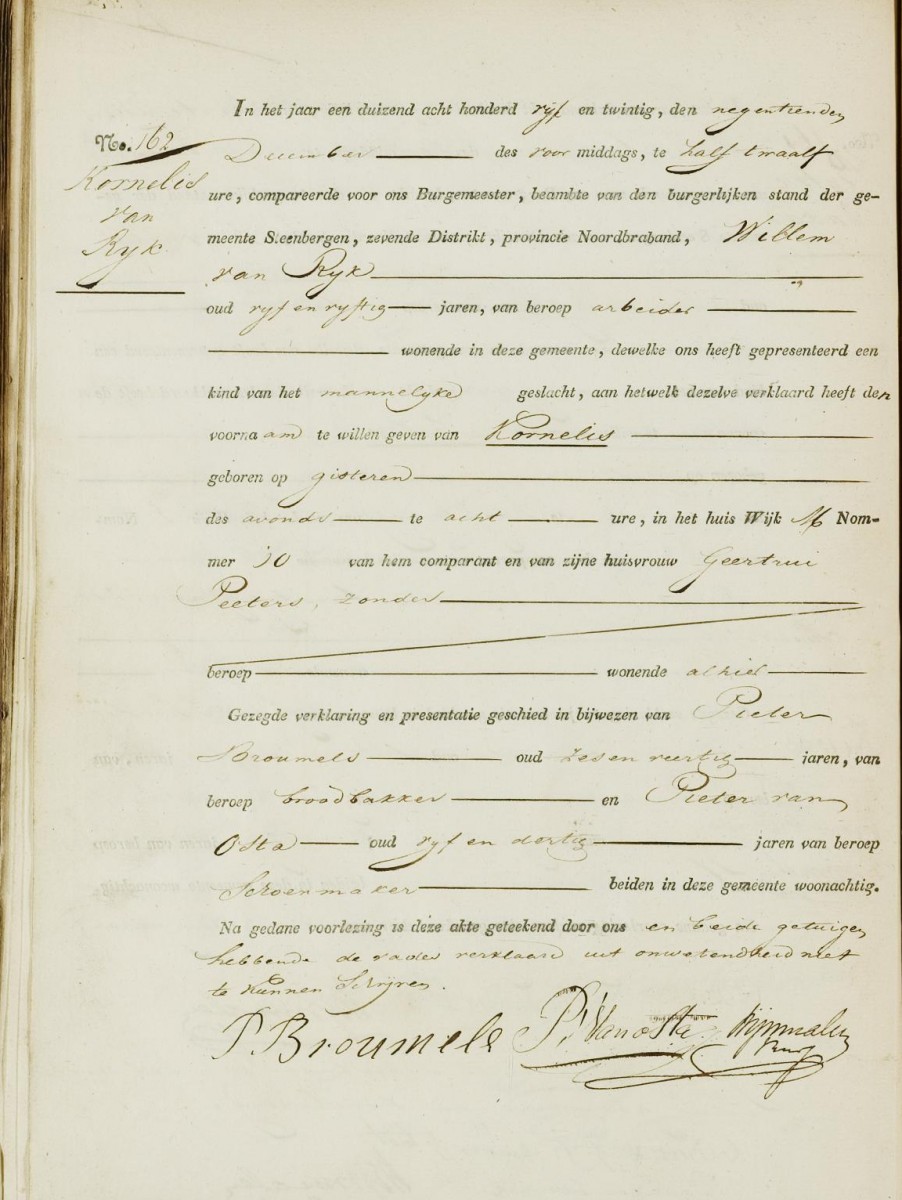 In het jaar een duizend acht honderd vyf en twintig, den negentienden
No. 162
December des voor middags, te half twaalf
Kornelis
van
Ryk
ure, compareerde voor ons Burgemeester, beambte van den burgerlijken stand der ge-
meente Steenbergen, zevende Distrikt, provincie Noordbraband, Willem
van Ryk
oud vyf en vyftig jaren, van beroep arbeider
wonende in deze gemeente, dewelke ons heeft gepresenteerd een
kind van het mannelyke geslacht, aan hetwelk dezelve verklaard heeft den
voornaam te willen geven van Kornelis
geboren op gisteren
des avonds te acht ure, in het huis Wijk M Nom-
mer 50 van hem comparant en van zijne huisvrouw Geertrui
Peeters, zonder
beroep wonende alhier
Gezegde verklaring en presentatie geschied in bijwezen van Pieter
Broumels oud zes en veertig jaren, van
beroep broodbakker en Pieter van
Osta oud vyf en dertig jaren van beroep
Schoenmaker beiden in deze gemeente woonachtig.
Na gedane voorlezing is deze akte geteekend door ons en beide getuigen
hebbende de vader verklaard uit onwetendheid niet
te kunnen Schryven.
P. Broumels P. Van Osta